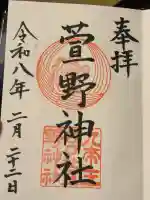 奉拝
萱野神社
令和八年二月二十二日